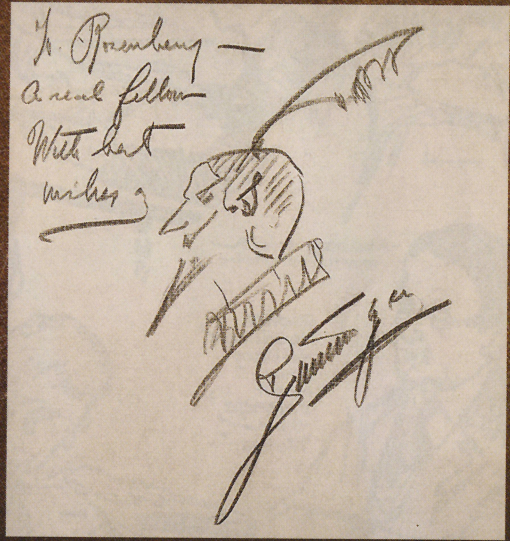 To Rosenberg —
A real fellow
With best
wishes